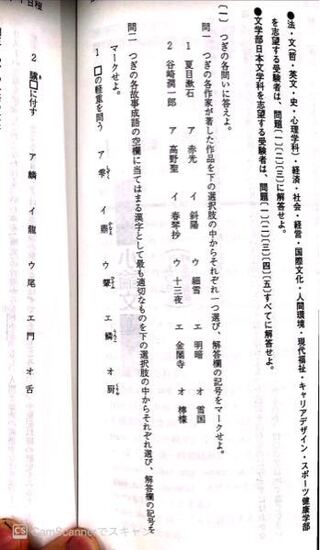 ●法・文(哲・英文・史・心理学科)・経済・社会・経営・国際文化・人間環境・現代福祉・キャリアデザイン・スポーツ健康学部
を志望する受験者は、問題〔一〕〔二〕〔三〕に解答せよ。
●文学部日本文学科を志望する受験者は、問題〔一〕〔二〕〔三〕〔四〕〔五〕すべてに解答せよ。
〔一〕 つぎの各問いに答えよ。
問一 つぎの各作家が著した作品を下の選択肢の中からそれぞれ一つ選び、解答欄の記号をマークせよ。
1 夏目漱石 ア 赤光 イ 斜陽 ウ 細雪 エ 明暗 オ 雪国
2 谷崎潤一郎 ア 高野聖 イ 春琴抄 ウ 十三夜 エ 金閣寺 オ 檸檬
問二 つぎの各故事成語の空欄に当てはまる漢字として最も適切なものを下の選択肢の中からそれぞれ選び、解答欄の記号を
マークせよ。
1 □の軽重を問う ア イ ウ エ 鱗 オ 厨
日程
2 驥□に付す ア 鱗 イ 龍 ウ 尾 エ 門 オ 舌
CS CamScannerでスキャン